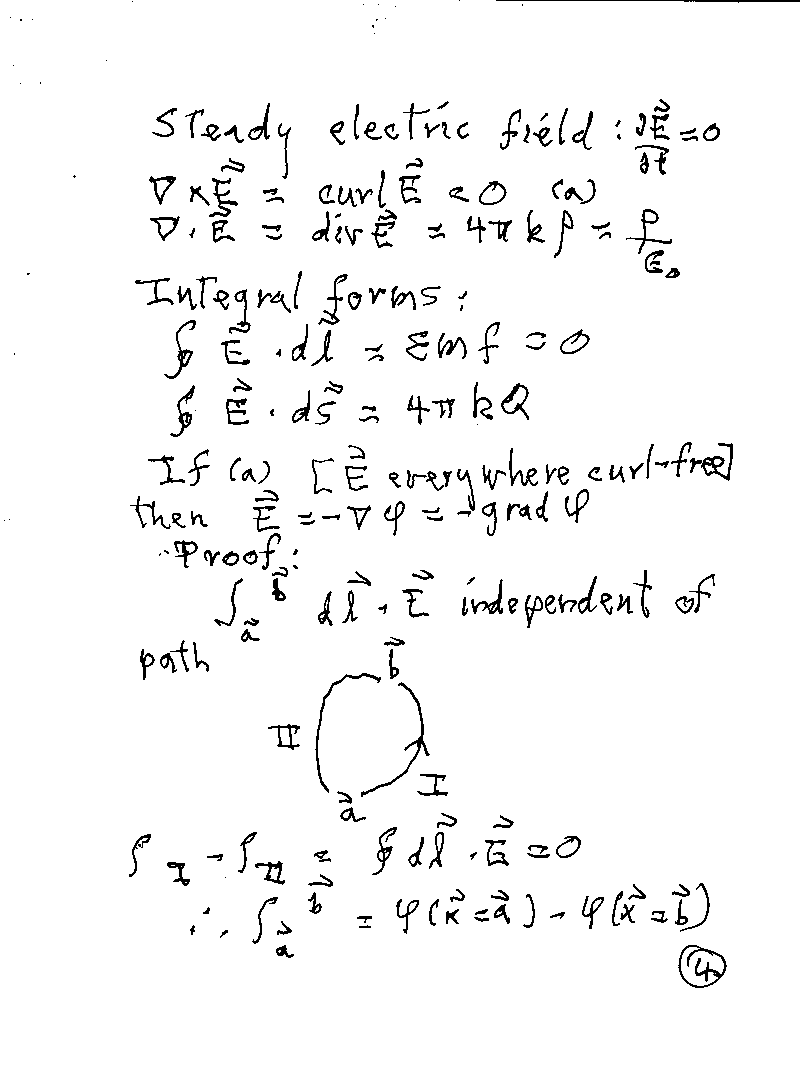 Steady electric field : ∂E⃗/∂t = 0
∇ × E⃗ = curl E⃗ = 0 (a)
∇ · E⃗ = div E⃗ = 4πkρ = ρ/ε₀
Integral forms :
∮ E⃗ · dl⃗ = Emf = 0
∮ E⃗ · ds⃗ = 4πkQ
If (a) [E⃗ everywhere curl-free]
then E⃗ = -∇φ = -grad φ
Proof :
∫_a⃗^b⃗ dl⃗ · E⃗ independent of
path
b⃗
II
I
a⃗
∫_I - ∫_II = ∮ dl⃗ · E⃗ = 0
∴ ∫_a⃗^b⃗ = φ(x⃗ = a⃗) - φ(x⃗ = b⃗)
4